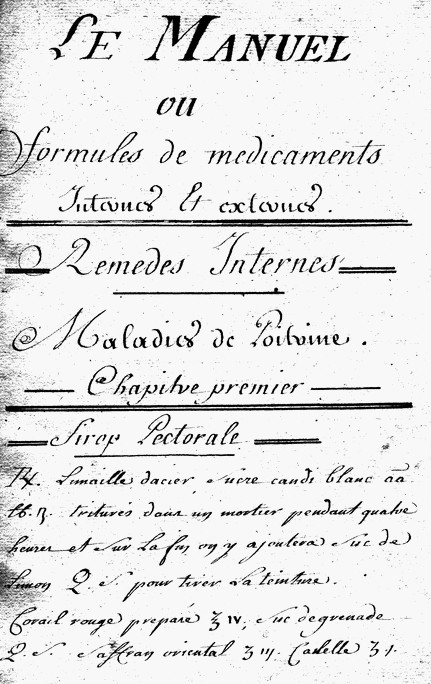 LE MANUEL
ou
formules de medicaments
Internes Et externes.
Remedes Internes
Maladies de Poitrine.
Chapitre premier
Sirop Pectorale
℞. Limaille dacier sucre candi blanc aa
triturés dans un mortier pendant quatre
heures et sur la fin on y ajoutera suc de
Limon Q. S. pour tirer La teinture.
Corail rouge preparé ʒ IV, suc de grenade
Q. S. saffran oriental ʒ III. Canelle ʒ I.